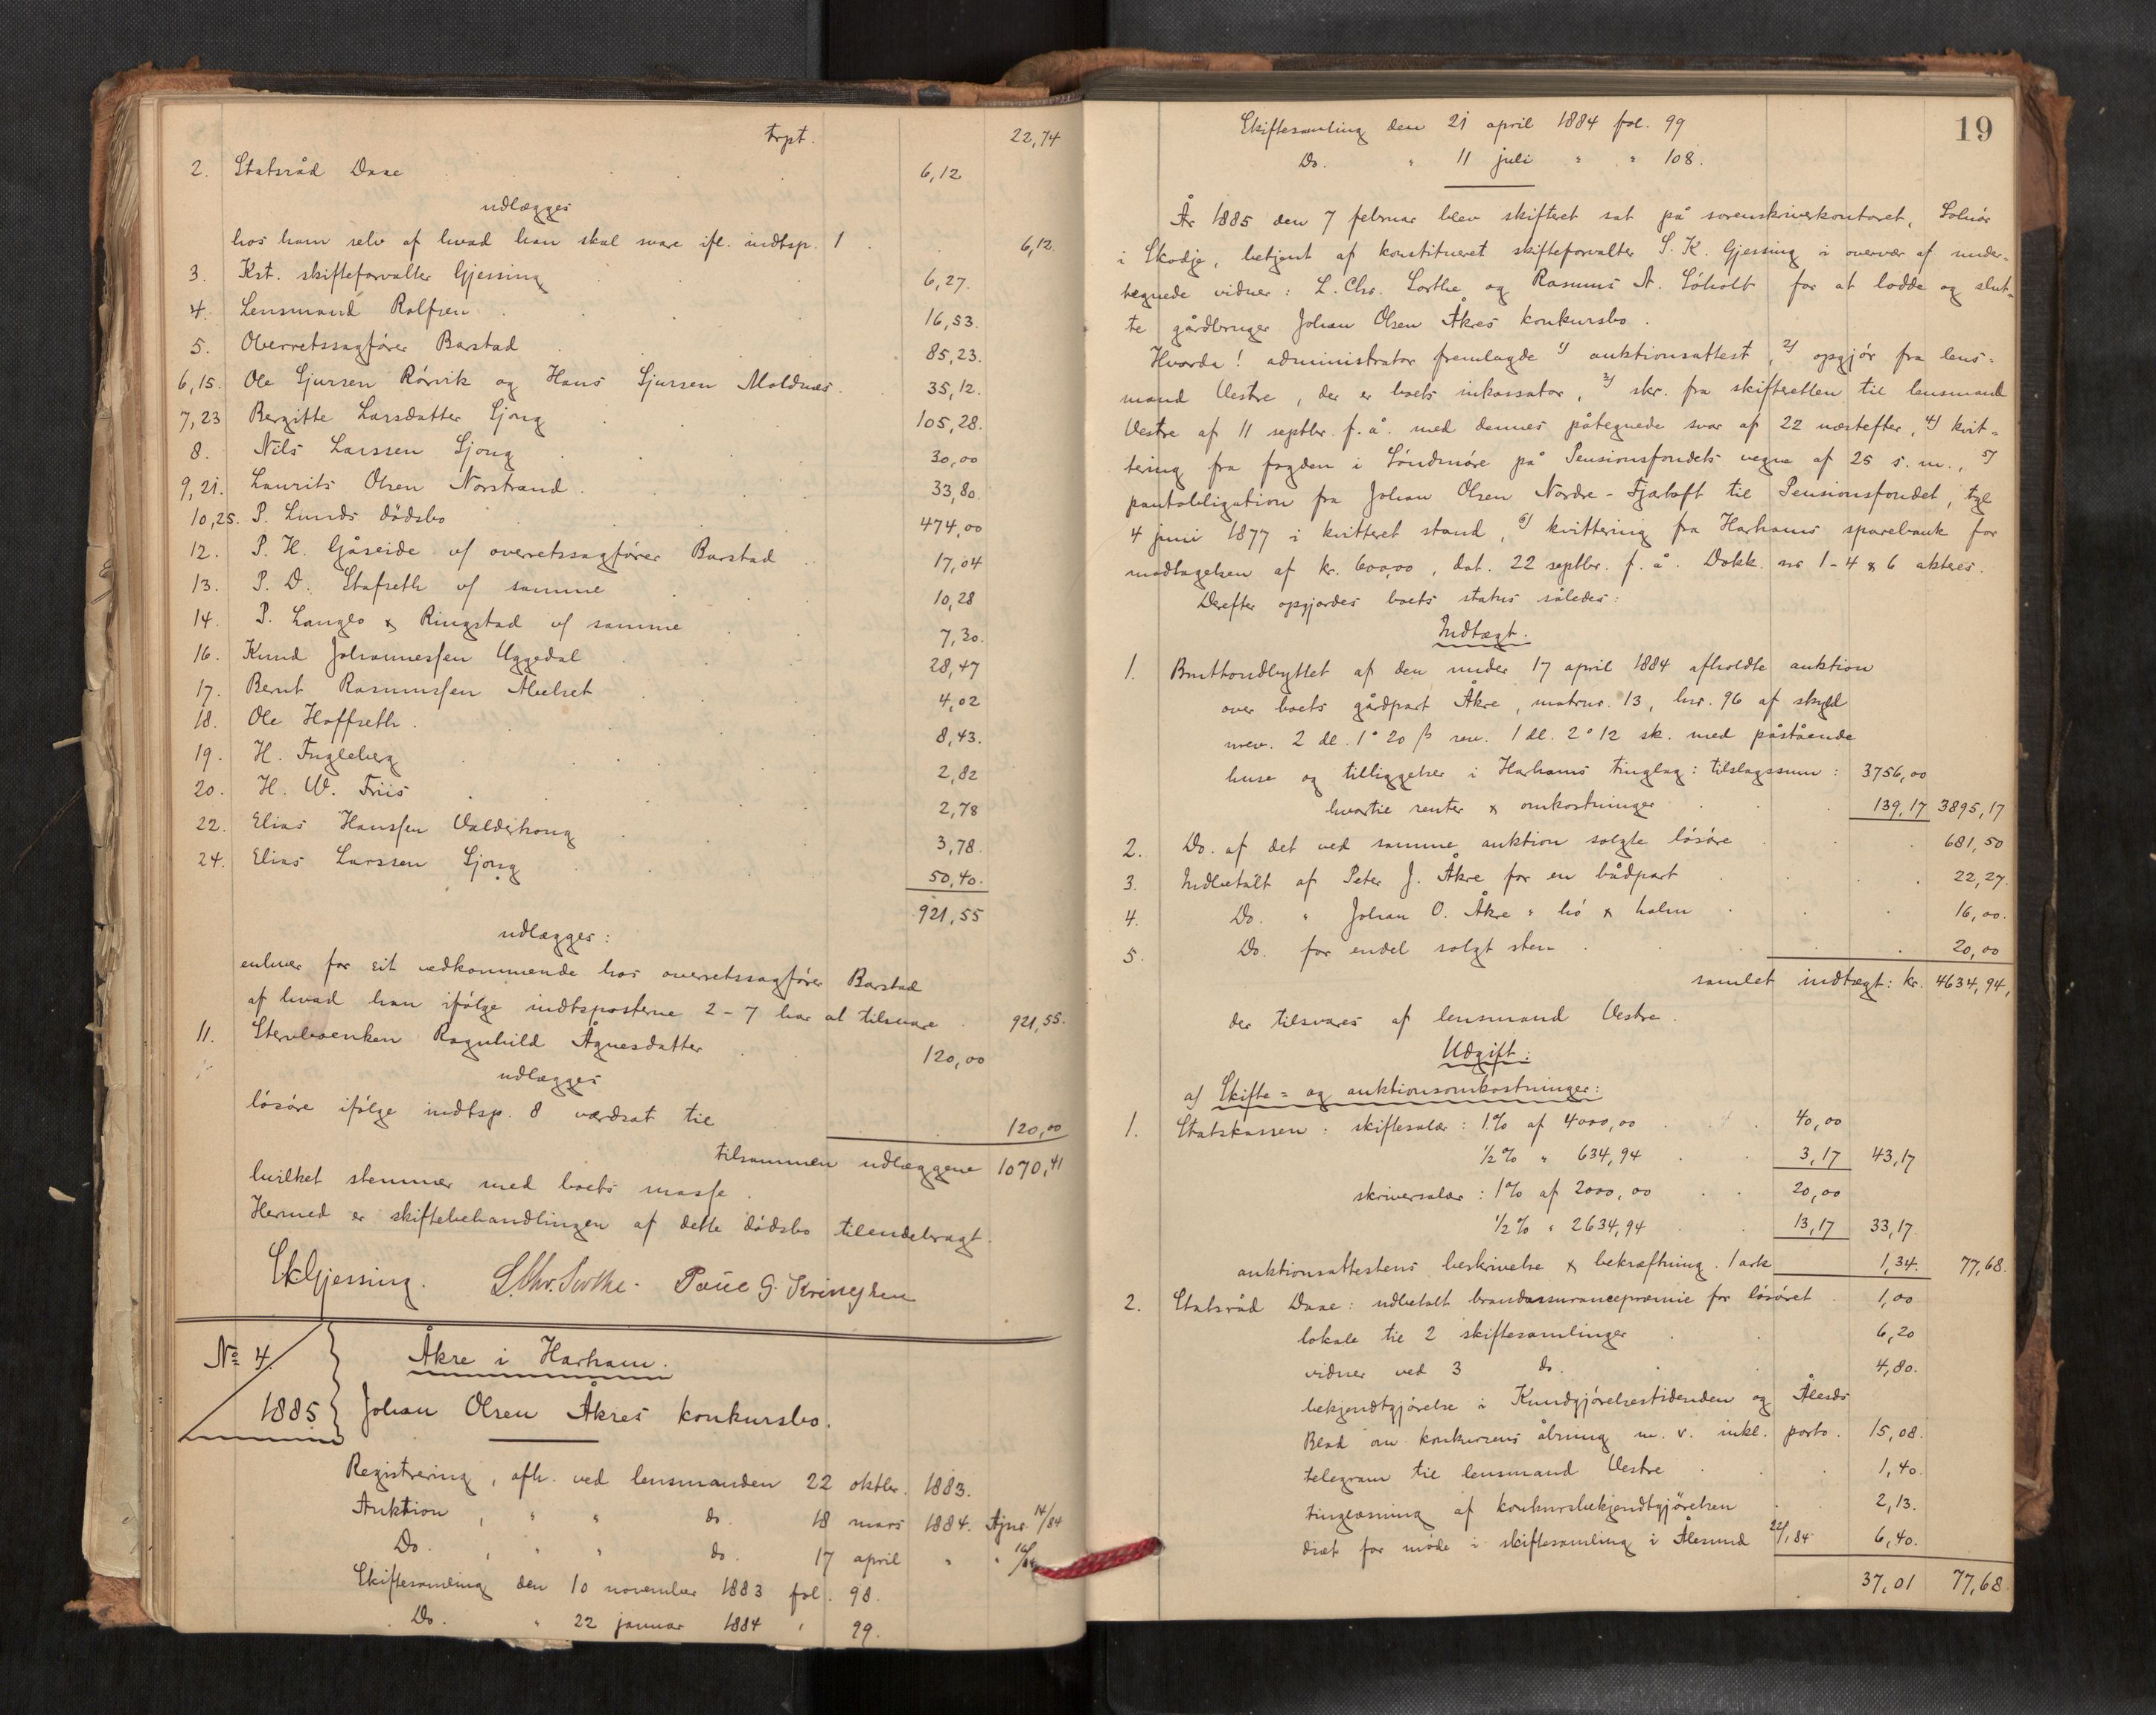 trpt. 22,74
2. Statsråd Daae 6,12
udlægges
hos ham selv af hvad han skal svare ifl. indtsp. 1 6,12.
3. Kst. skifteforvalter Gjessing 6,27.
4. Lensmand Rolfsen 16,53.
5. Overretssagfører Barstad 85,23.
6,15. Ole Sjursen Rørvik og Hans Sjursen Moldnæs. 35,12.
7,23 Bergitte Larsdatter Gjøng 105,28.
8. Nils Larssen Gjøng 30,00
9,21. Laurits Olsen Norstrand 33,80.
10,25. P. Lunds dødsbo 474,00
12. P. H. Gåseide v/ overretssagfører Barstad 17,04
13. P. D. Stafseth v/ samme 10,28
14. P. Langlo & Ringstad v/ samme 7,30.
16. Knud Johannessen Uggedal 28,47
17. Bernt Rasmussen Abelset 4,02
18. Ole Hoffseth. 8,43.
19. H. Fugleberg 2,82
20. H. W. Friis 2,78
22. Elias Hanssen Valderhoug 3,78.
24. Elias Larssen Gjøng 50,40.
921,55
udlægges:
enhver for sit vedkommende hos overretssagfører Barstad
af hvad han ifølge indtsposterne 2-7 har at tilsvare 921,55.
11. Stervboenken Ragnhild Ågnesdatter 120,00
udlægges
løsøre ifølge indtsp. 8 værdsat til 120,00
tilsammen udlæggene 1070,41
hvilket stemmer med boets masse.
Hermed er skiftebehandlingen af dette dødsbo tilendebragt.
SKGjessing. L.Chr.Sorthe. Paul G. Kringsen
No 4/1885 Åkre i Harham.
Johan Olsen Åkres konkursbo.
Registrering, afh. ved lensmanden 22 oktbr. 1883.
Auktion, " " do. 18 mars 1884. Ajnr. 14/84
Do. , " " do. 17 april " "
Skiftesamling den 10 november 1883 fol. 98.
Do. " 22 januar 1884 " 99.
19
Skiftesamling den 21 april 1884 fol. 99
Do. " 11 juli " " 108.
År 1885 den 7 februar blev skifteret sat på sorenskriverkontoret, Solnør
i Skodje, betjent af konstitueret skifteforvalter S. K. Gjessing i overvær af under-
tegnede vidner: L. Chr. Sorthe og Rasmus A. Søholt for at lodde og slut-
te gårdbruger Johan Olsen Åkres konkursbo.
Hvorda! administrator fremlagde 1) auktionsattest, 2) opgjør fra lens-
mand Vestre, der er boets inkassator, 3) skr. fra skifteretten til lensmand
Vestre af 11 septbr. f. å. med dennes påtegnede svar af 22 næstefter, 4) kvit-
tering fra fogden i Søndmøre på Pensionsfondets vegne af 25 s. m., 5)
pantobligation fra Johan Olsen Nordre-Fjætoft til Pensionsfondet, tgl
4 juni 1877 i kvitteret stand, 6) kvittering fra Harhams sparebank for
modtagelsen af kr. 600,00, dat. 22 septbr. f. å. Dokk. nr 1-4 & 6 akteres.
Derefter opgjordes boets status således:
Indtægt.
1. Bruttoudbyttet af den under 17 april 1884 afholdte auktion
over boets gårdpart Åkre, matrnr. 13, lnr. 96 af skyld
urev. 2 dl. 1 o 20 β rev. 1 dl. 2 o 12 sk. med påstående
huse og tilliggelser i Harhams tinglag: tilslagssum: 3756,00
hvortil renter & omkostninger 139,17 3895,17
2. Do. af det ved samme auktion solgte løsøre 681,50
3. Indbetalt af Peter J. Åkre for en bådpart 22,27.
4. Do. " Johan O. Åkre " hø & halm 16,00.
5. Do. for endel solgt sten 20,00
samlet indtægt: kr. 4634,94,
der tilsvares af lensmand Vestre.
Udgift:
a) Skifte- og auktionsomkostninger:
1. Statskassen: skiftesalær: 1% af 4000,00 40,00
1/2% " 634,94 3,17 43,17
skriversalær: 1% af 2000,00 20,00
1/2% " 2634,94 13,17 33,17.
auktionsattestens beskrivelse & bekræftning. 1 ark 1,34. 77,68.
2. Statsråd Daae: udbetalt brandassurancepræmie for løsøret 1,00
lokale til 2 skiftesamlinger 6,20
vidner ved 3 do. 4,80.
bekjendtgjørelse i Kundgjørelsestidenden og Ålesds
Blad om konkursens åbning m. v. inkl. porto. 15,08.
telegram til lensmand Vestre 1,40.
tinglæsning af konkursbekjendtgjørelsen 2,13.
diæt for møde i skiftesamling i Ålesund 22/1 84 6,40.
37,01 77,68